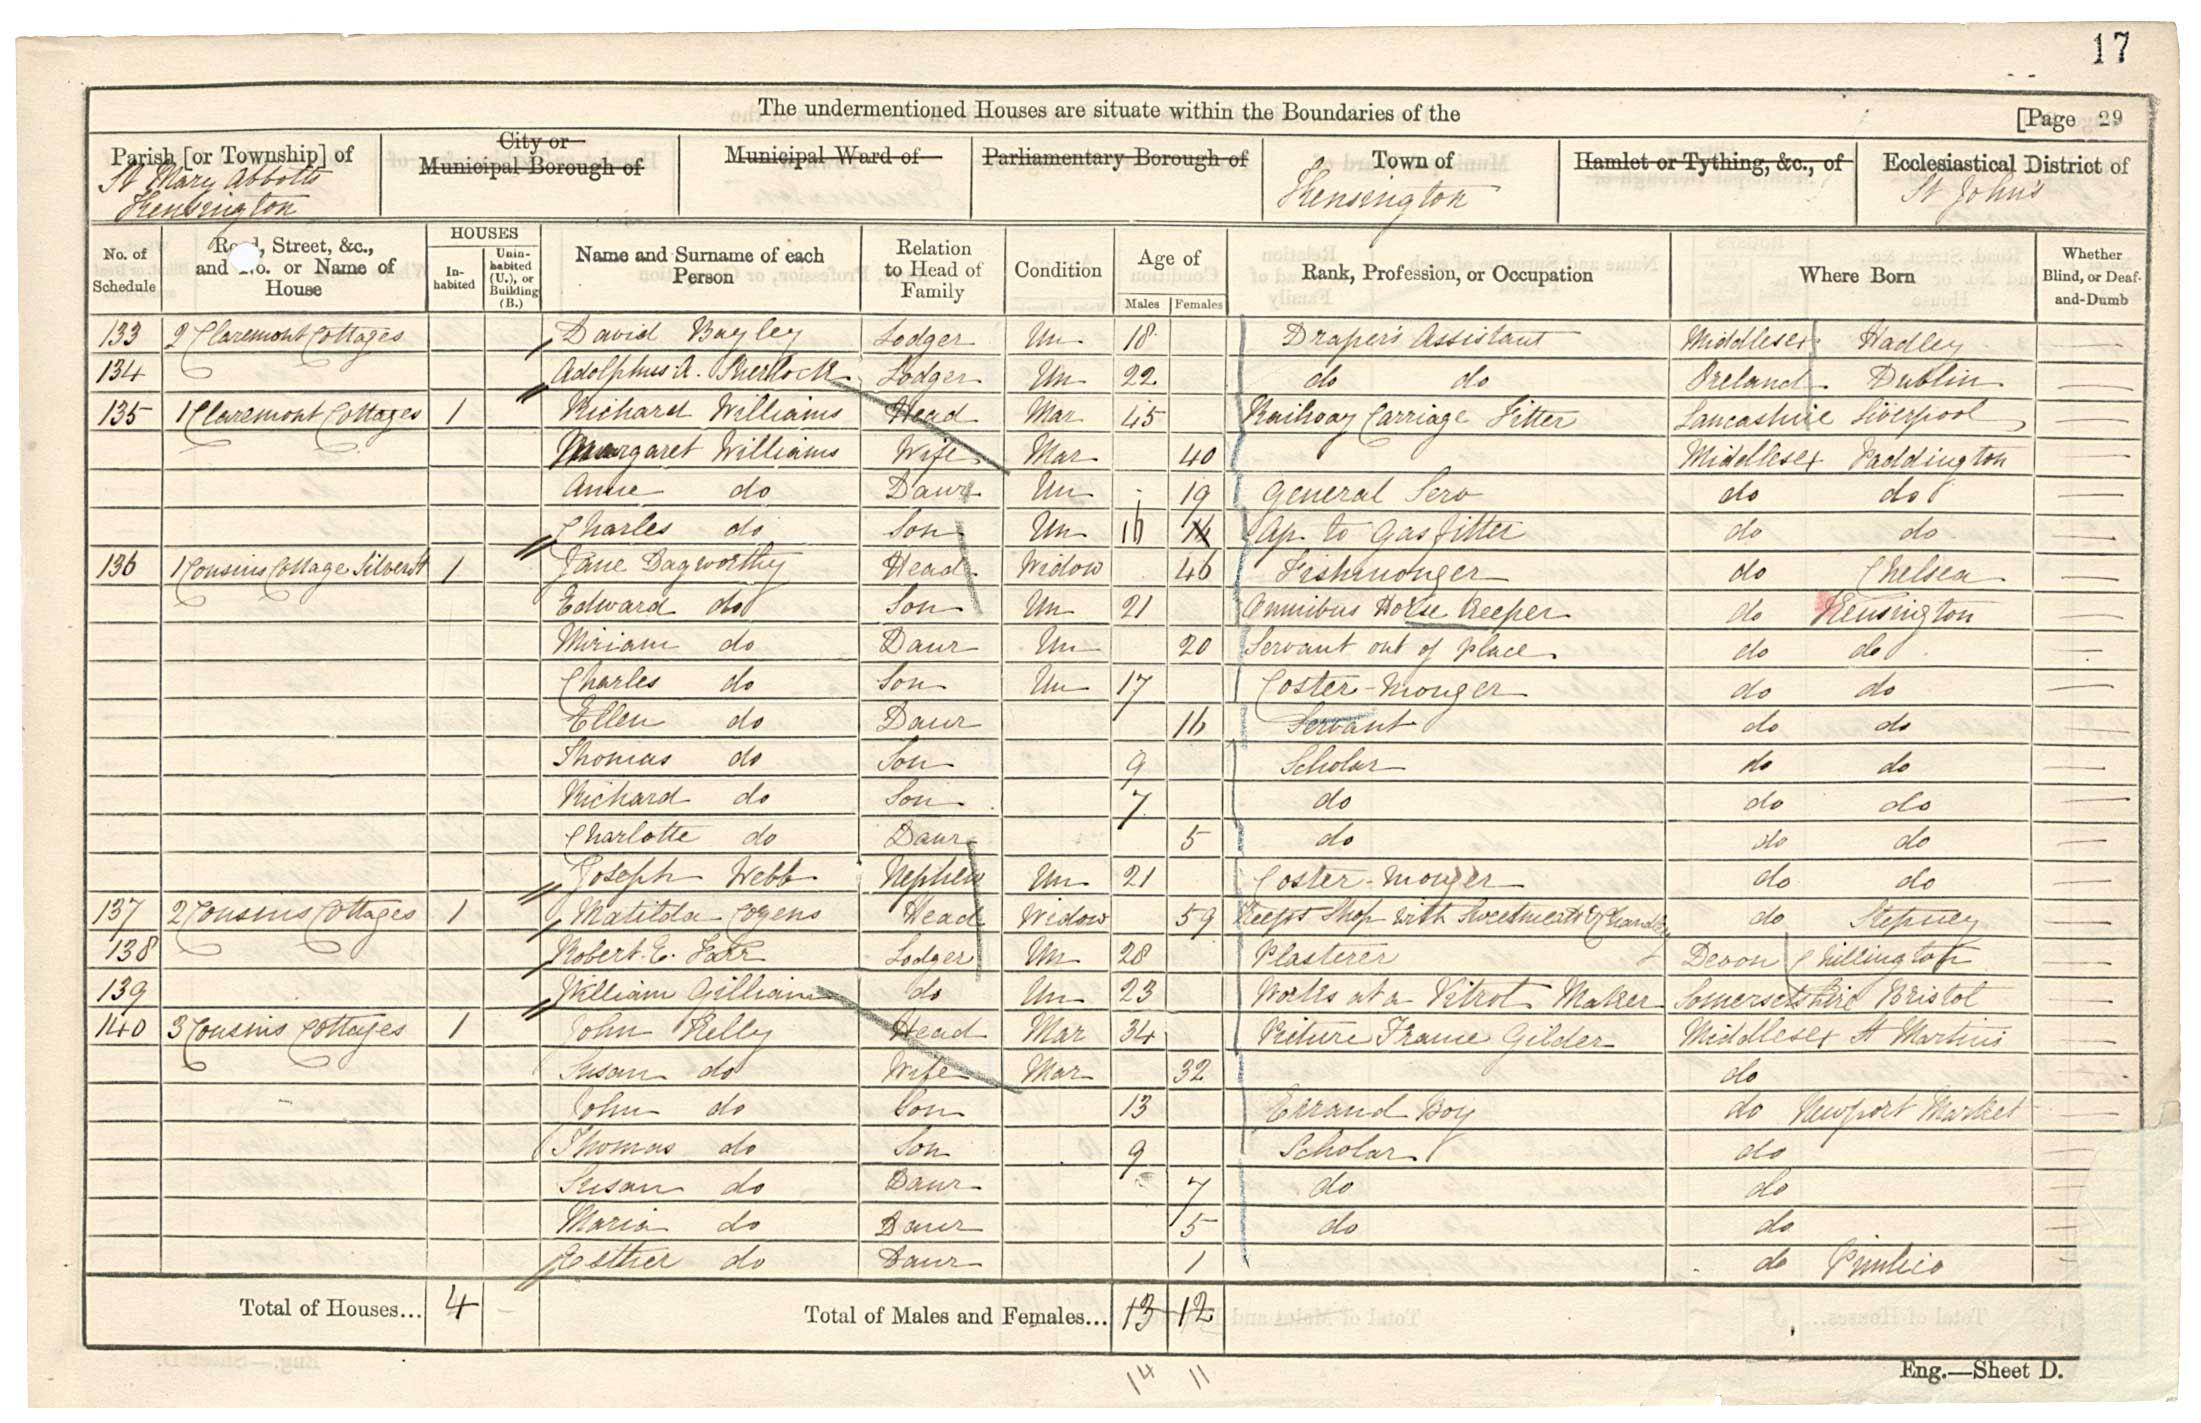 17
The undermentioned Houses are situate within the Boundaries of the [Page 29
Parish [or Township] of City or Municipal Borough of Municipal Ward of Parliamentary Borough of Town of Hamlet or Tything, &c., of Ecclesiastical District of
St Mary Abbotts Kensington Kensington St John's
No. of Schedule Road, Street, &c., and No. or Name of House HOUSES Inhabited Uninhabited (U.), or Building (B.) Name and Surname of each Person Relation to Head of Family Condition Age of Males Females Rank, Profession, or Occupation Where Born Whether Blind, or Deaf-and-Dumb
133 2 Claremont Cottages David Bayley Lodger Un 18 Draper's Assistant Middlesex Hadley
134 Adolphus A. Sherlock Lodger Un 22 do do Ireland Dublin
135 1 Claremont Cottages 1 Richard Williams Head Mar 45 Railway Carriage Fitter Lancashire Liverpool
Margaret Williams Wife Mar 40 Middlesex Paddington
Anne do Daur Un 19 General Serv do do
Charles do Son Un 16 Ap to Gas fitter do do
136 1 Cousins Cottage Silver St 1 Jane Dagworthy Head Widow 46 Fishmonger do Chelsea
Edward do Son Un 21 Omnibus Horse Keeper do Kensington
Miriam do Daur Un 20 Servant out of place do do
Charles do Son Un 17 Coster-monger do do
Ellen do Daur 16 Servant do do
Thomas do Son 9 Scholar do do
Richard do Son 7 do do do
Charlotte do Daur 5 do do do
Joseph Webb Nephew Un 21 Coster-monger do do
137 2 Cousins Cottages 1 Matilda Cozens Head Widow 59 Keeps Shop with Sweetmeats & do Stepney
138 Robert E. Farr Lodger Un 28 Plasterer Devon Chillington
139 William Gilliam do Un 23 Works at a Vitrol Maker Somersetshire Bristol
140 3 Cousins Cottages 1 John Kelly Head Mar 34 Picture Frame Gilder Middlesex St Martins
Susan do Wife Mar 32 do
John do Son 13 Errand Boy do Newport Market
Thomas do Son 9 Scholar do
Susan do Daur 7 do do
Maria do Daur 5 do do
Esther do Daur 1 do Pimlico
Total of Houses... 4 Total of Males and Females... 13 12
14 11
Eng.—Sheet D.